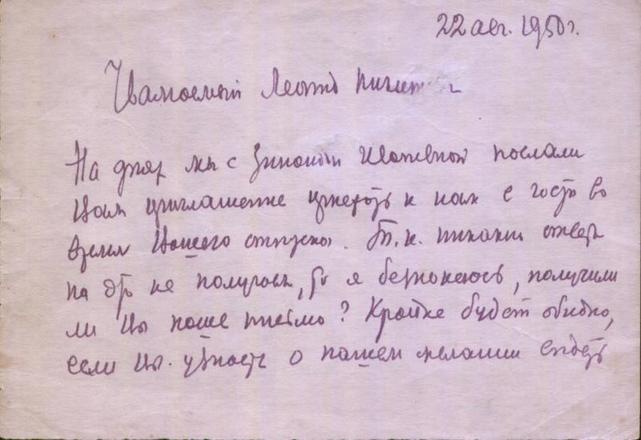 22 авг. 1950 г.
Уважаемый Леонид
На днях мы с Зинаидой послали
Вам приглашение приехать к нам в гости во
время Вашего отпуска. Т.к. никакого ответа
на это не получаем, то я беспокоюсь, получили
ли Вы наше письмо? Крайне будет обидно,
если Вы о нашем желании